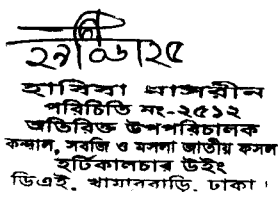 হাবিবা নাসরীন
পরিচিতি নং-২৫১২
অতিরিক্ত উপপরিচালক
কন্দাল, সবজি ও মসলা জাতীয় ফসল
হর্টিকালচার উইং
ডিএই, খামারবাড়ি, ঢাকা।